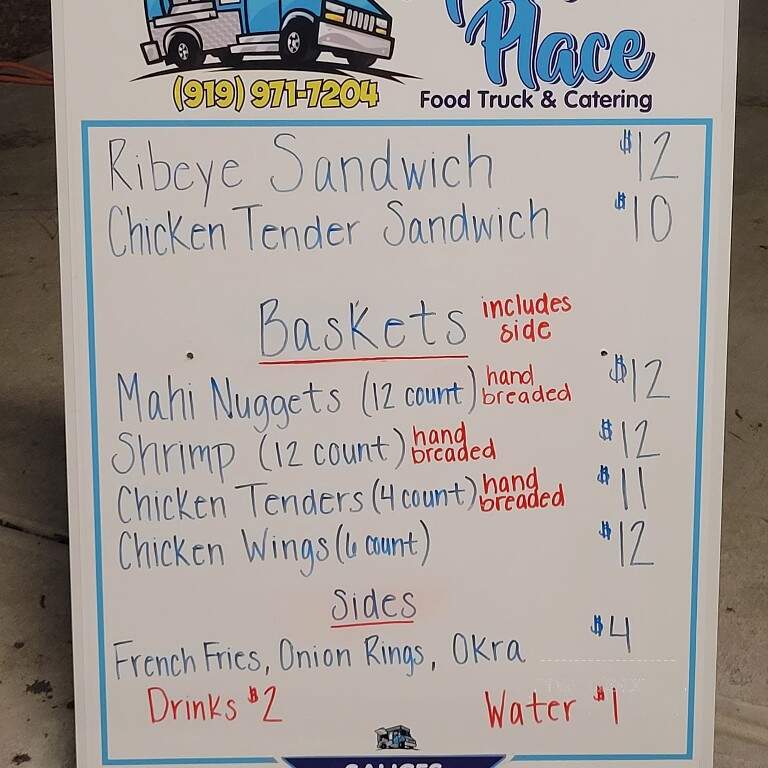 Place
(919) 971-7204
Food Truck & Catering
Ribeye Sandwich $12
Chicken Tender Sandwich $10
Baskets includes side
Mahi Nuggets (12 count) hand breaded $12
Shrimp (12 count) hand breaded $12
Chicken Tenders (4 count) hand breaded $11
Chicken Wings (6 count) $12
Sides
French Fries, Onion Rings, Okra $4
Drinks $2 Water $1
SAUCES